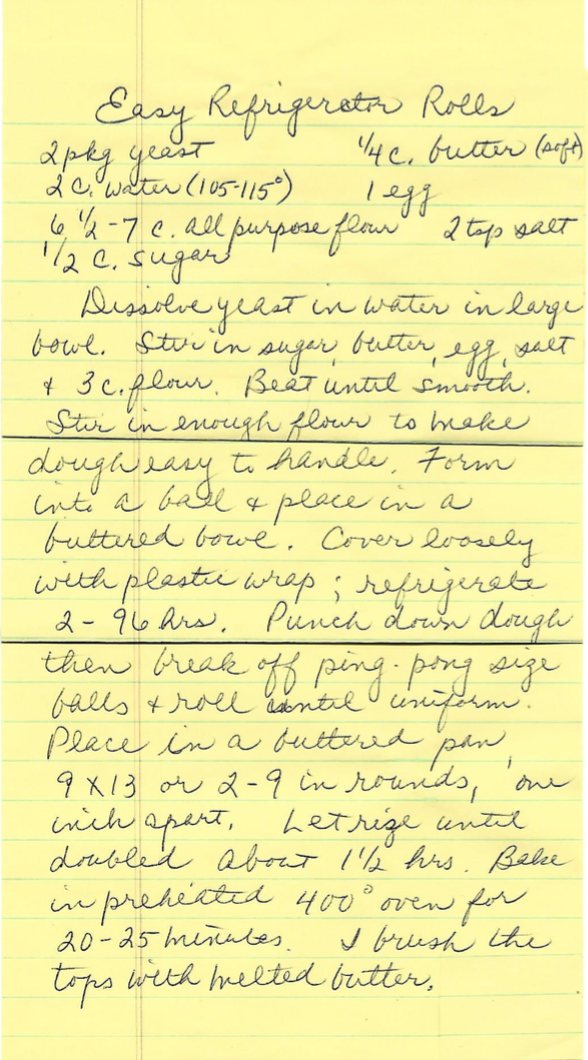 Easy Refrigerator Rolls
2 pkg yeast 1/4 c. butter (soft)
2 c. water (105-115°) 1 egg
6 1/2 - 7 c. all purpose flour 2 tsp salt
1/2 c. sugar
Dissolve yeast in water in large
bowl. Stir in sugar, butter, egg, salt
+ 3 c. flour. Beat until smooth.
Stir in enough flour to make
dough easy to handle. Form
into a ball + place in a
buttered bowl. Cover loosely
with plastic wrap; refrigerate
2 - 96 hrs. Punch down dough
then break off ping-pong size
balls + roll until uniform.
Place in a buttered pan,
9 X 13 or 2 - 9 in rounds, one
inch apart. Let rize until
doubled about 1 1/2 hrs. Bake
in preheated 400° oven for
20-25 minutes. I brush the
tops with melted butter.